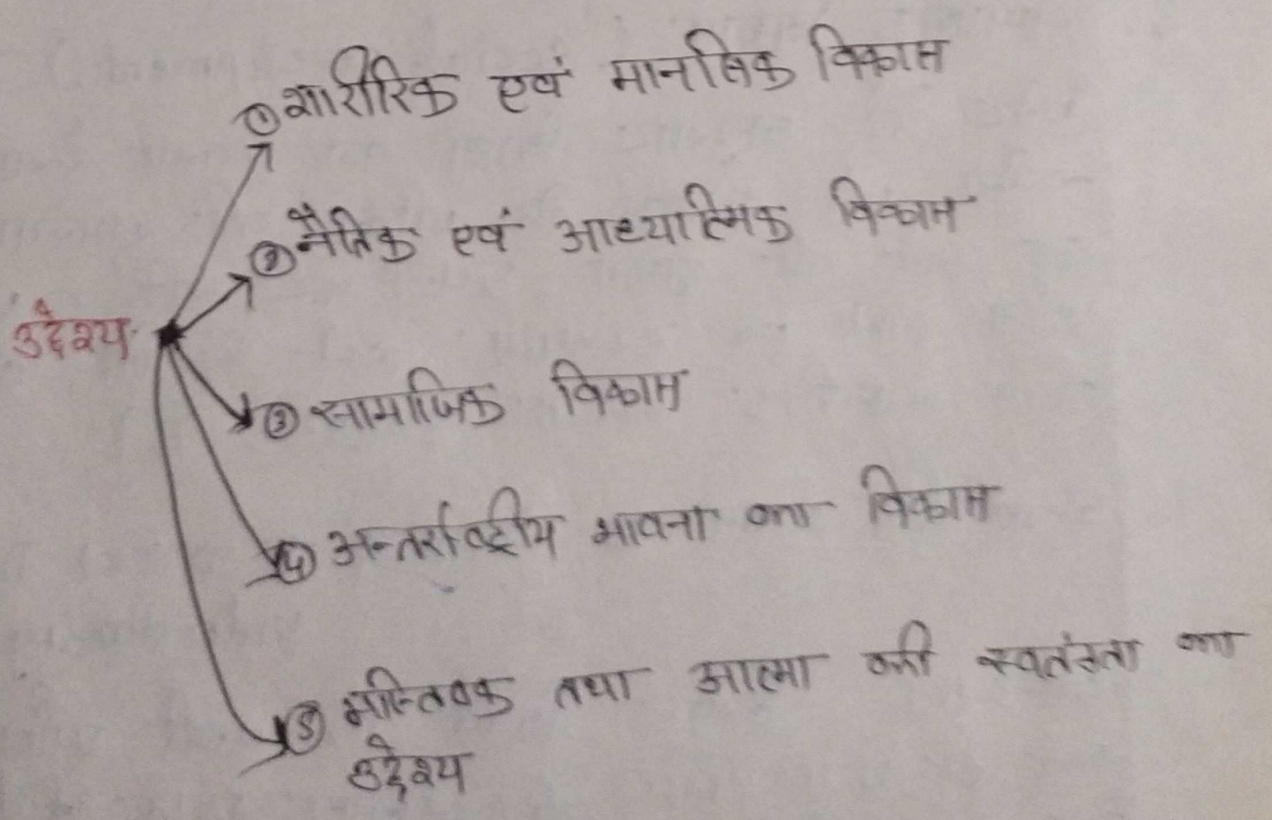 ① शारीरिक एवं मानसिक विकास
② नैतिक एवं आध्यात्मिक विकास
उद्देश्य
③ सामाजिक विकास
④ अन्तर्राष्ट्रीय भावना का विकास
⑤ मस्तिष्क तथा आत्मा की स्वतंत्रता का
उद्देश्य